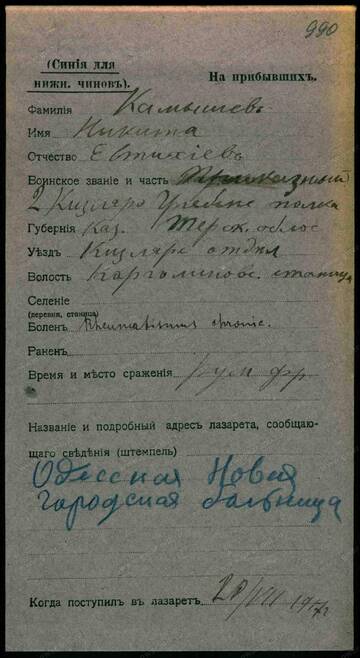 990
(Синія для
нижн. чиновъ).
На прибывшихъ.
Фамилія Камышевъ
Имя Никита
Отчество Евтихіевъ
Воинское званіе и часть Приказный
2 Кизляро Гребенс полка
Губернія Каз. Терск. облас
Уѣздъ Кизлярс отдѣл
Волость Каргалинск. станица
Селеніе
(деревня, станица)
Боленъ Rheumatismus chronic.
Раненъ
Время и мѣсто сраженія рум фр
Названіе и подробный адресъ лазарета, сообщаю-
щаго свѣдѣнія (штемпель)
Одесская Новая
городская больница
Когда поступилъ въ лазаретъ 28/VII 1917г